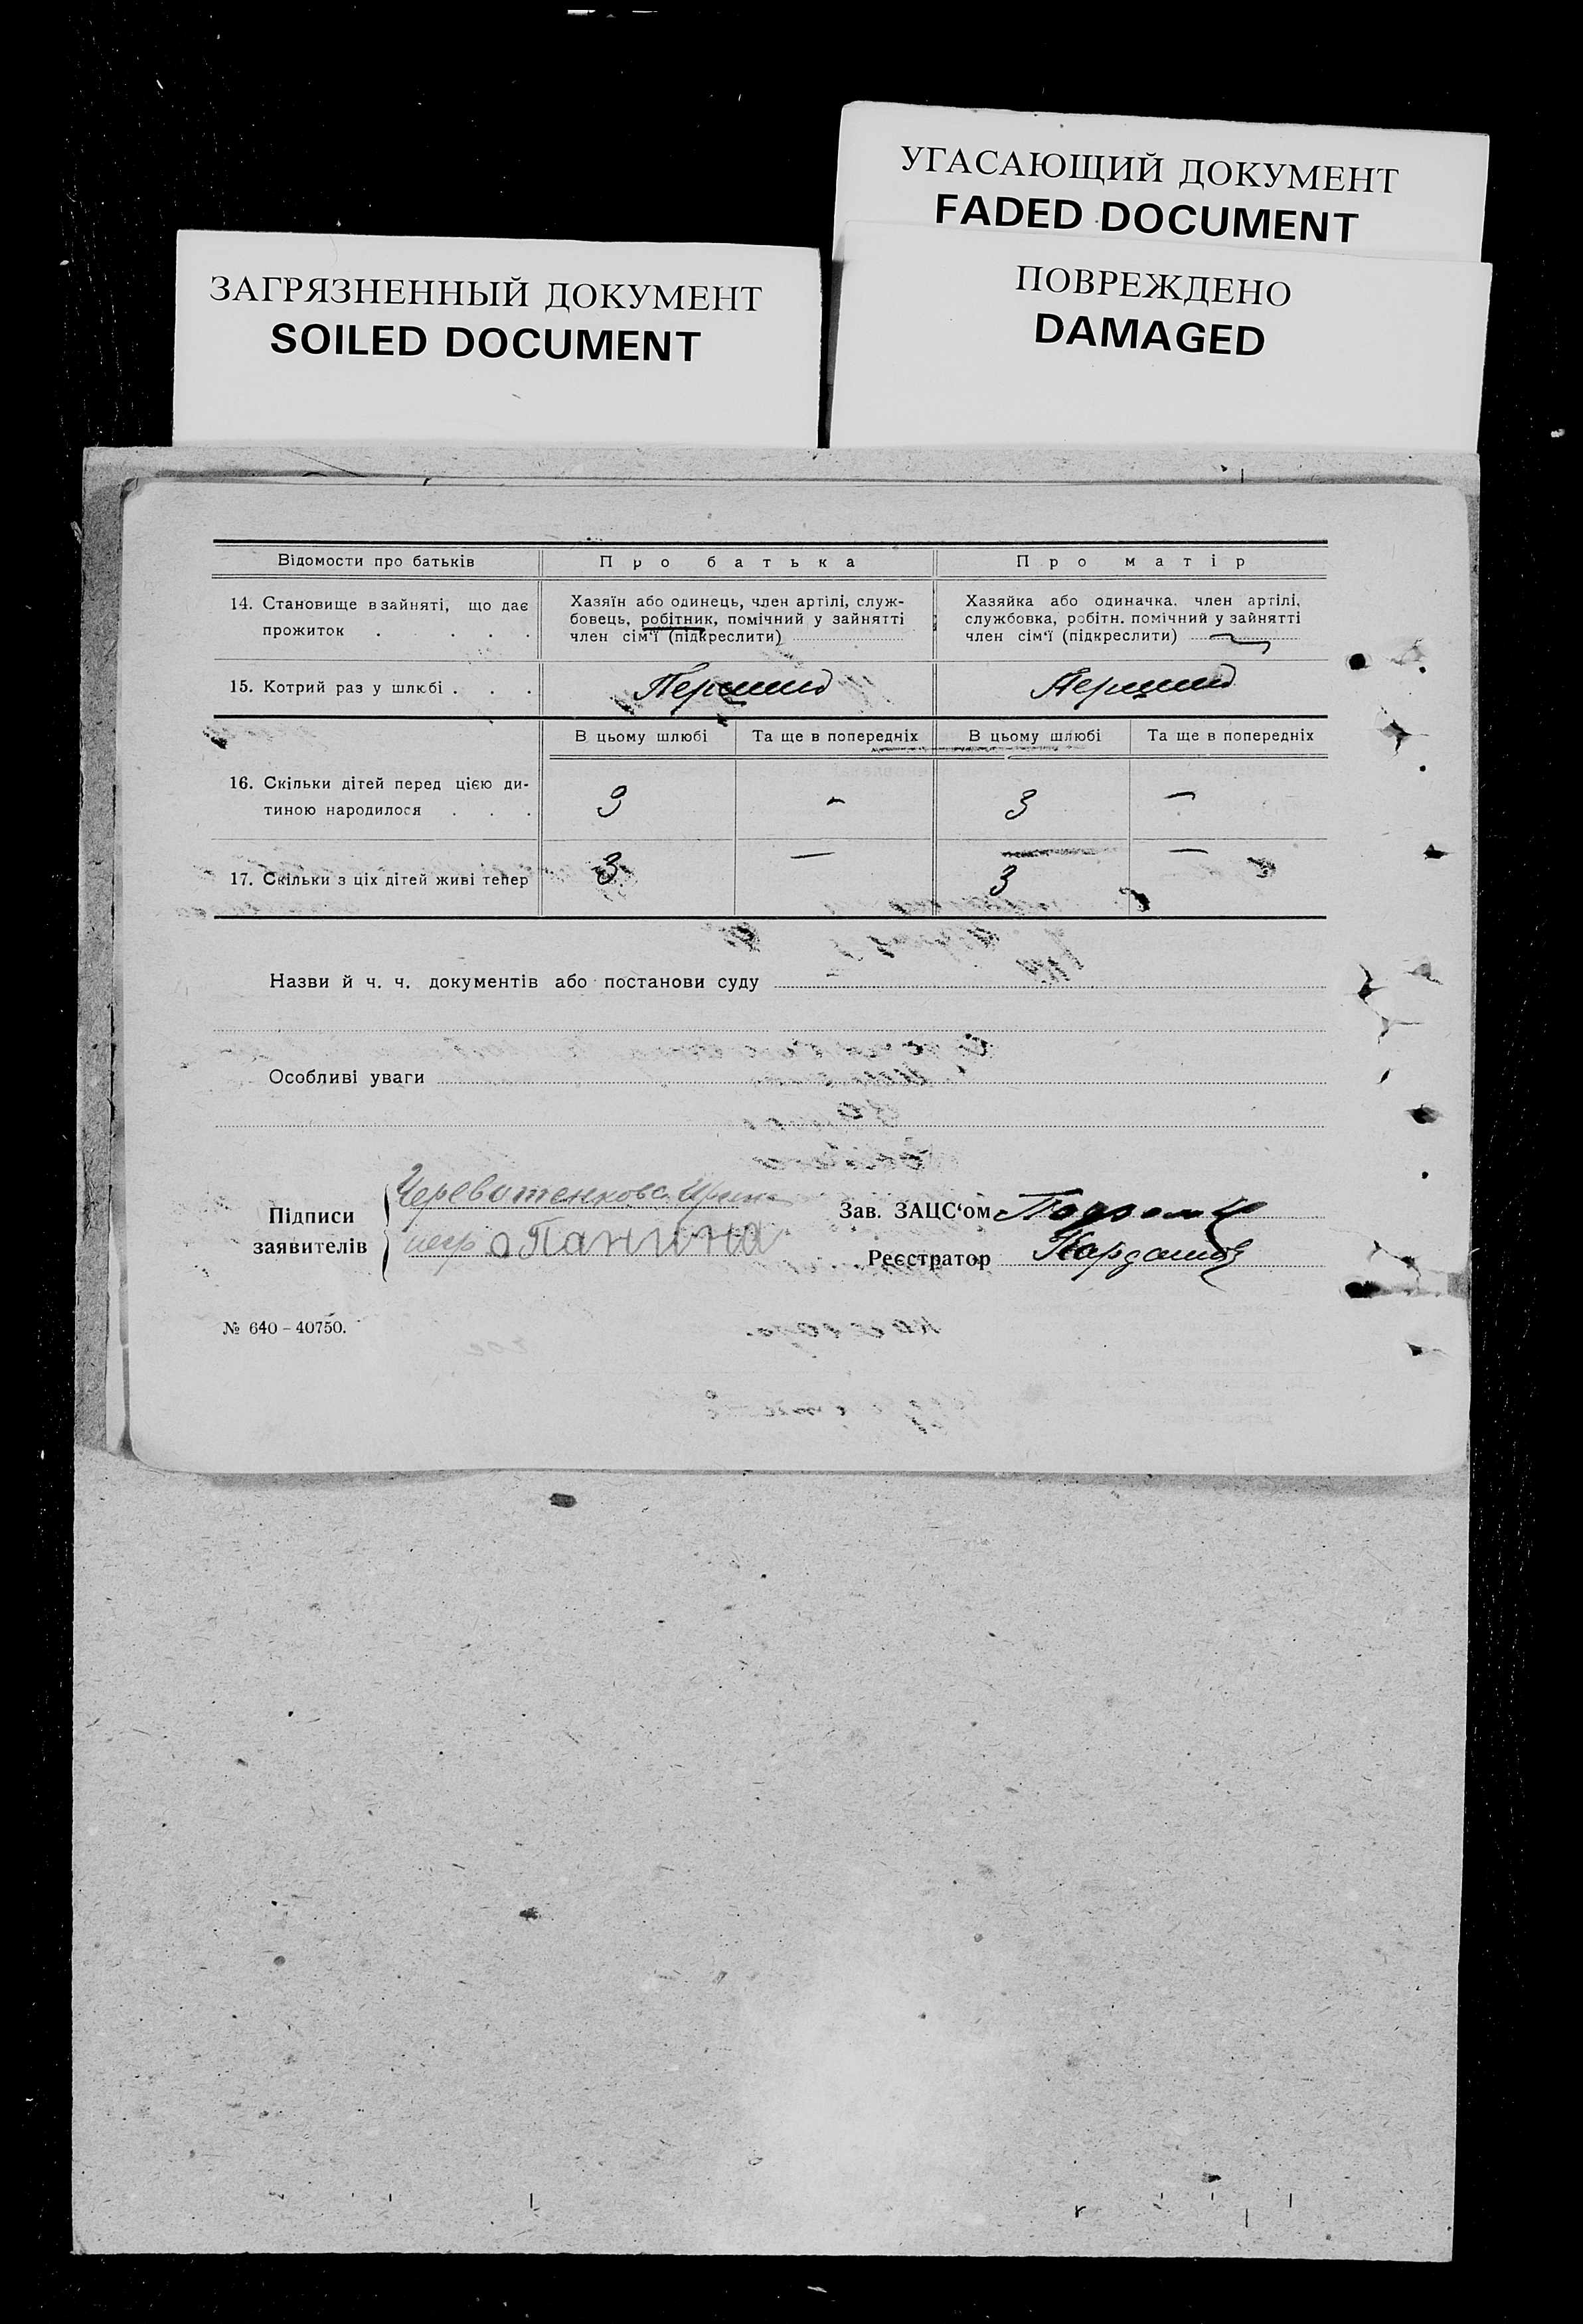 УГАСАЮЩИЙ ДОКУМЕНТ
FADED DOCUMENT
ПОВРЕЖДЕНО
DAMAGED
ЗАГРЯЗНЕННЫЙ ДОКУМЕНТ
SOILED DOCUMENT
Відомости про батьків Про батька Про матір
14. Становище в зайняті, що дає прожиток . . . .
Хазяїн або одинець, член артілі, служ-
бовець, робітник, помічний у зайнятті
член сім'ї (підкреслити)
Хазяйка або одиначка. член артілі,
службовка, робітн. помічний у зайнятті
член сім'ї (підкреслити)
15. Котрий раз у шлюбі . . . Перший Перший
В цьому шлюбі Та ще в попередніх В цьому шлюбі Та ще в попередніх
16. Скільки дітей перед цією ди-
тиною народилося . . . 3 - 3 -
17. Скільки з ціх дітей живі тепер 3 - 3 -
Назви й ч. ч. документів або постанови суду
Особливі уваги
Підписи
заявителів
Череватенкова
Панина
Зав. ЗАЦС'ом
Реєстратор
№ 640 - 40750.